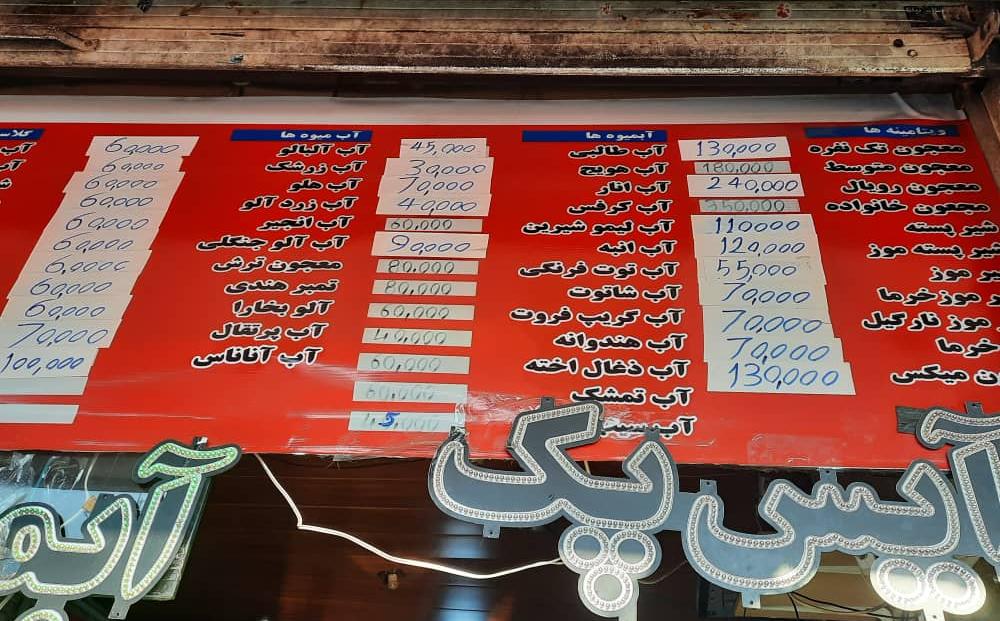 ویتامینه ها
معجون تک نفره
معجون متوسط
معجون رویال
معجون خانواده
شیر پسته
شیر پسته موز
موز
موز خرما
موز نارگیل
خرما
میکس
130,000
180,000
240,000
350,000
110000
120,000
55,000
70,000
70,000
70,000
130,000
آبمیوه ها
آب طالبی
آب هویج
آب انار
آب کرفس
آب لیمو شیرین
آب انبه
آب توت فرنگی
آب شاتوت
آب گریپ فروت
آب هندوانه
آب ذغال اخته
آب تمشک
آب سیب
45,000
30,000
70,000
40,000
60,000
90,000
80,000
80,000
60,000
40,000
60,000
60,000
45,000
آب میوه ها
آب آلبالو
آب زرشک
آب هلو
آب زرد آلو
آب انجیر
آب آلو جنگلی
معجون ترش
تمبر هندی
آلو بخارا
آب پرتقال
آب آناناس
60,000
60,000
60,000
60,000
60,000
60,000
60,000
60,000
60,000
70,000
100,000
آیس پک